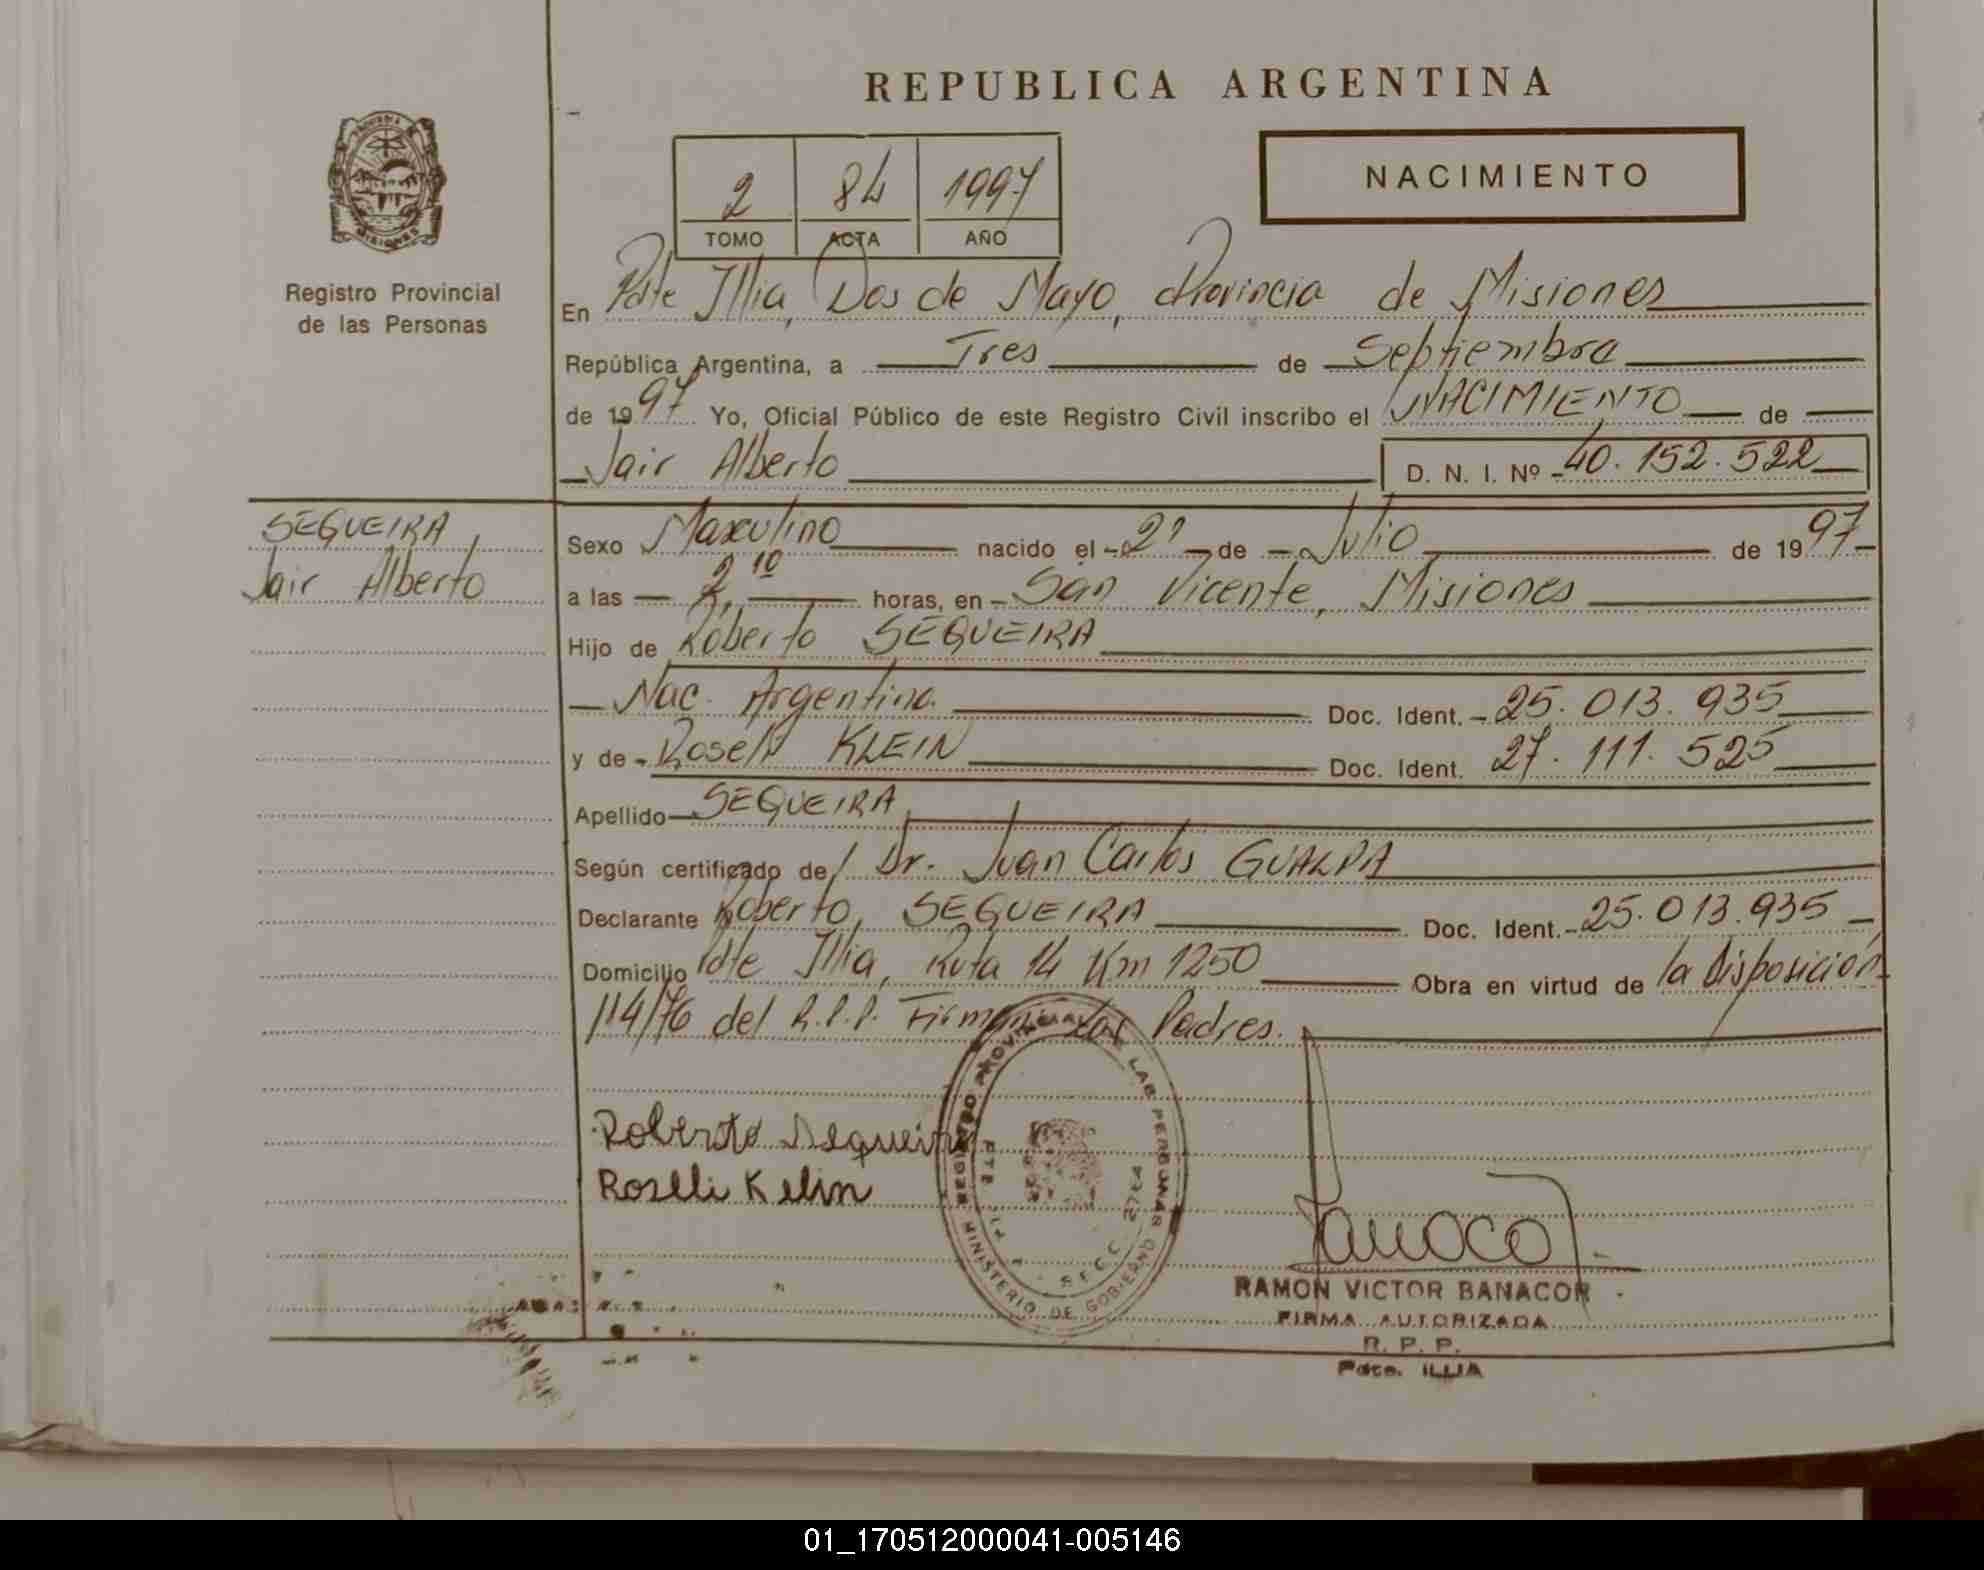 REPUBLICA ARGENTINA
NACIMIENTO
2 84 1997
TOMO ACTA AÑO
Registro Provincial
de las Personas
En Pdte Illia, Dos de Mayo, Provincia de Misiones
República Argentina, a Tres de Septiembre
de 1997 Yo, Oficial Público de este Registro Civil inscribo el NACIMIENTO de
Jair Alberto D. N. I. Nº 40.152.522
SEQUEIRA
Jair Alberto
Sexo Masculino nacido el de Julio de 1997
a las 2,10 horas, en San Vicente, Misiones
Hijo de Roberto SEQUEIRA
Nac. Argentina. Doc. Ident. 25.013.935
y de Roseli KLEIN Doc. Ident. 27.111.525
Apellido SEQUEIRA
Según certificado de Dr. Juan Carlos
Declarante Roberto, SEQUEIRA Doc. Ident. 25.013.935
Domicilio Pdte Illia, Ruta 14 Km 1250 Obra en virtud de la Disposición
114/76 del R.P.P. Firman los Padres.
Roberto Sequeira
Roselli Kelin
REGISTRO PROVINCIAL DE LAS PERSONAS
MINISTERIO DE GOBIERNO
RAMON VICTOR BANACOR
FIRMA AUTORIZADA
R. P. P.
Pdte. ILLIA
01_170512000041-005146